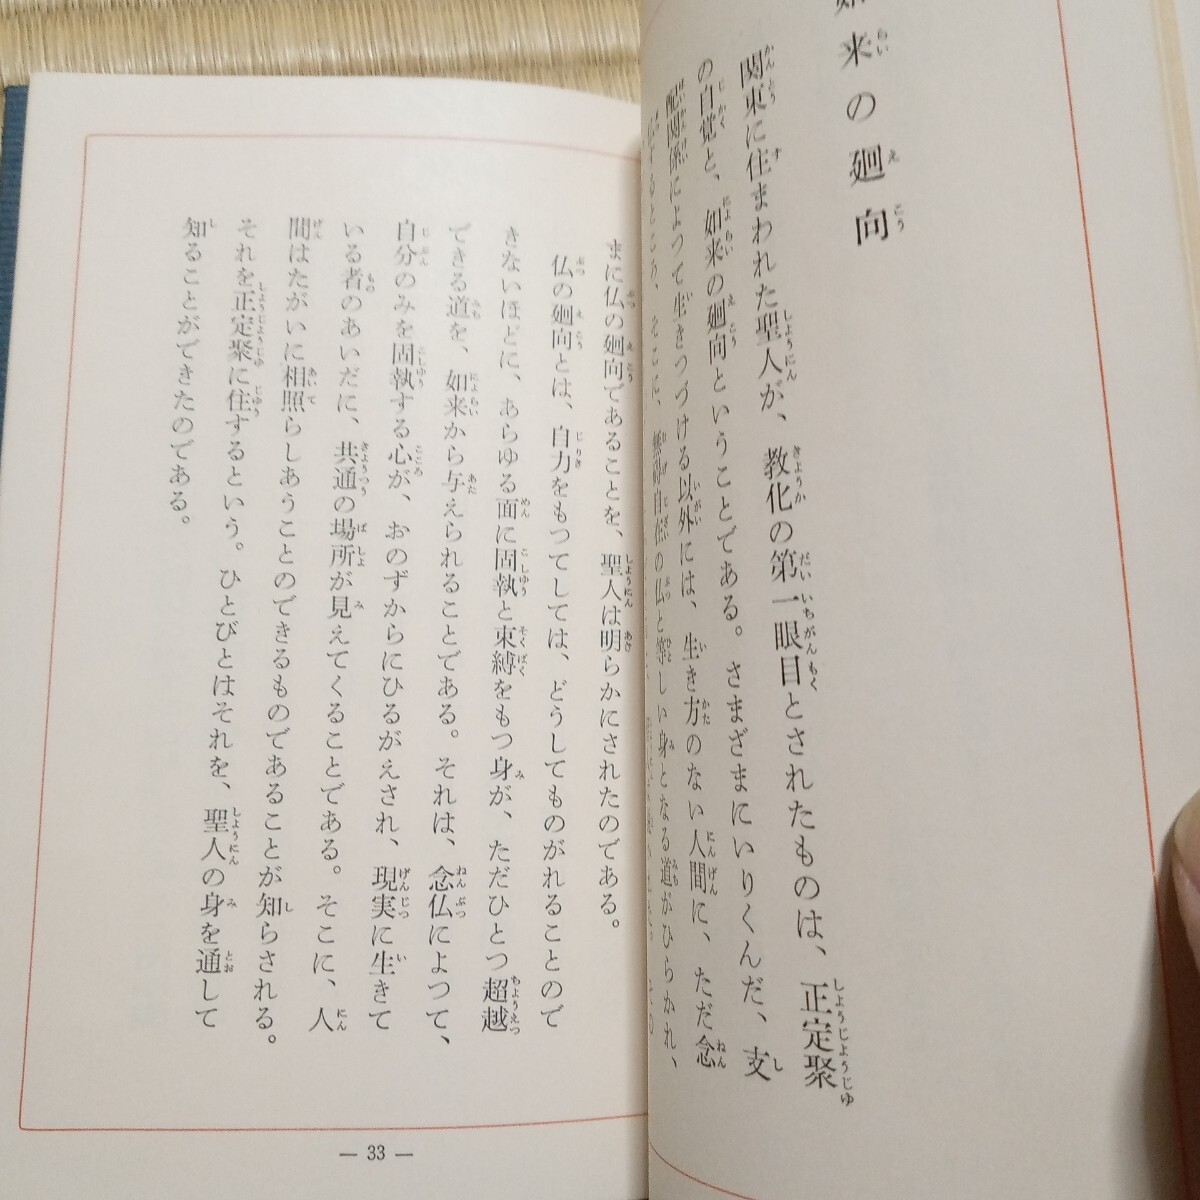 来の廻向
関東に住まわれた聖人が、教化の第一眼目とされたものは、正定聚
の自覚と、如来の廻向ということである。さまざまにいりくんだ、支
配関係によつて生きつづける以外には、生き方のない人間に、ただ念
ところへ、そこに、無碍自在の仏と等しい身となる道がひらかれ、
まに仏の廻向であることを、聖人は明らかにされたのである。
仏の廻向とは、自力をもつてしては、どうしてものがれることので
きないほどに、あらゆる面に固執と束縛をもつ身が、ただひとつ超越
できる道を、如来から与えられることである。それは、念仏によつて、
自分のみを固執する心が、おのずからにひるがえされ、現実に生きて
いる者のあいだに、共通の場所が見えてくることである。そこに、人
間はたがいに相照らしあうことのできるものであることが知らされる。
それを正定聚に住するという。ひとびとはそれを、聖人の身を通して
知ることができたのである。
— 33 —